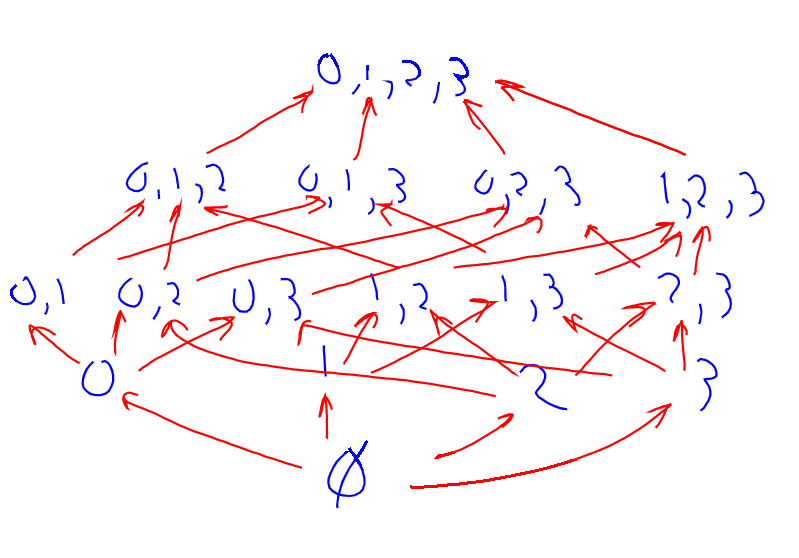 0,1,2,3
0,1,2 0,1,3 0,2,3 1,2,3
0,1 0,2 0,3 1,2 1,3 2,3
0 1 2 3
∅